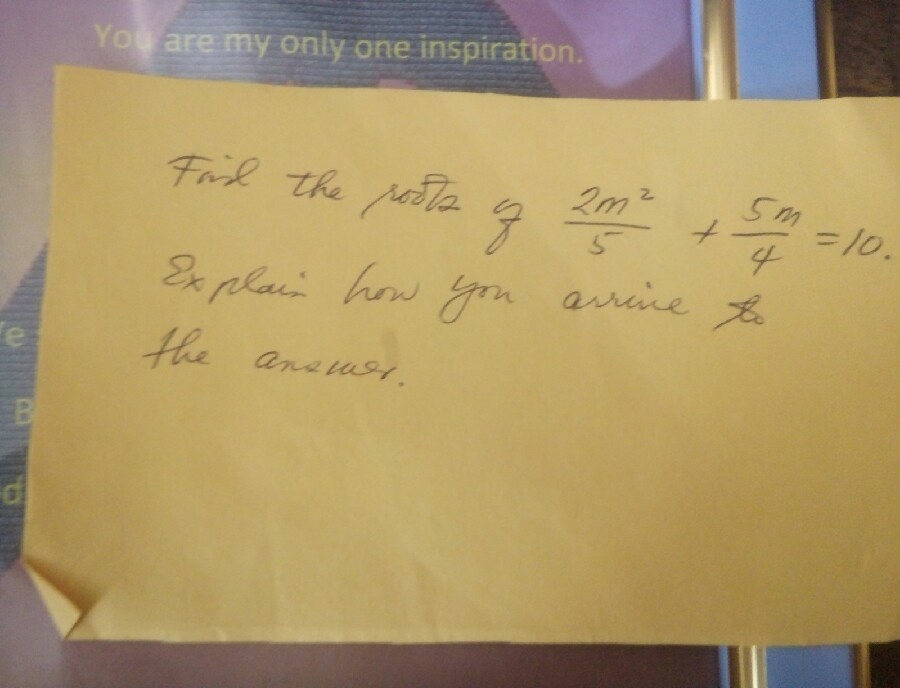 You are my only one inspiration.
Find the roots of \frac{2m^2}{5} + \frac{5m}{4} = 10.
Explain how you arrive to
the answer.
e
B
d